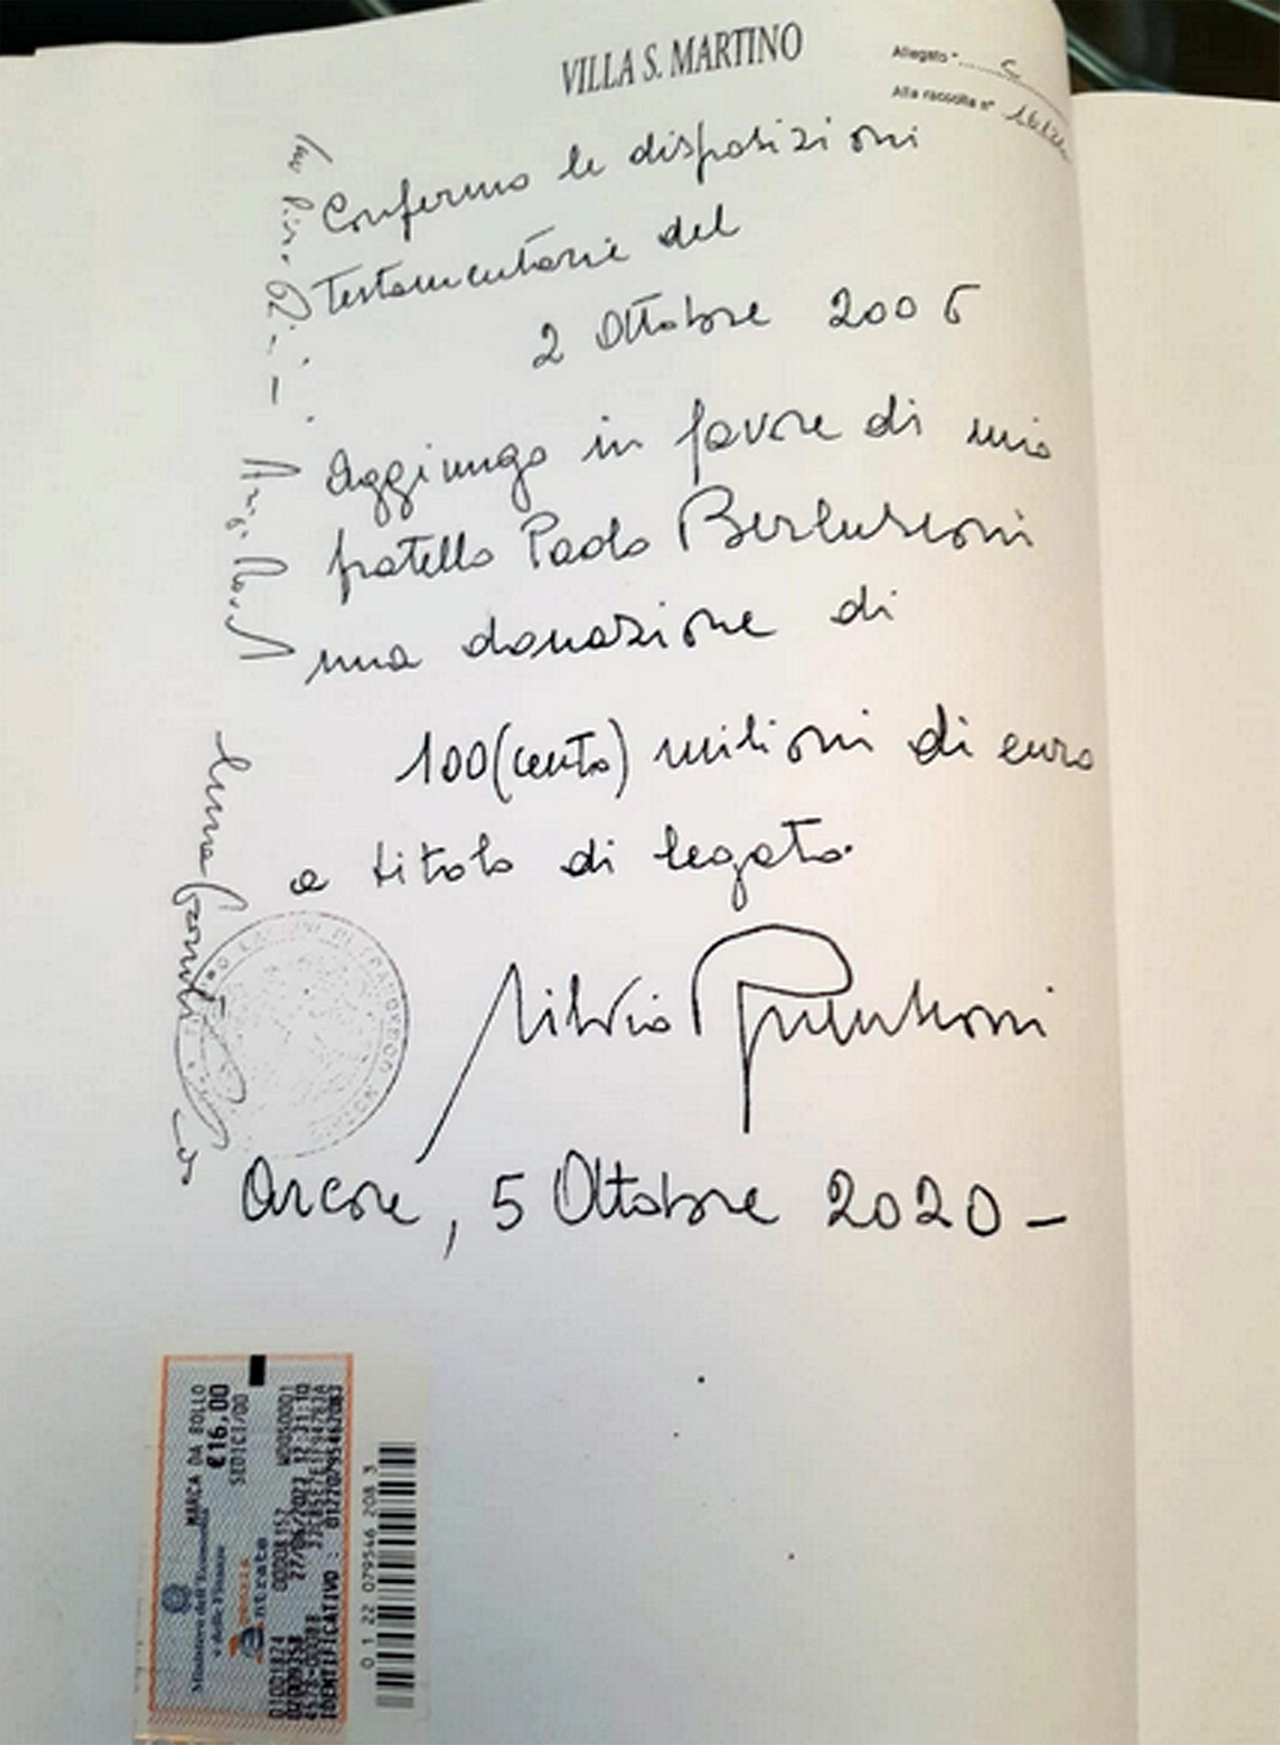 VILLA S. MARTINO
Allegato "
Alla raccolta n°
Confermo le disposizioni
testamentarie del
2 Ottobre 2006
Aggiungo in favore di mio
fratello Paolo Berlusconi
una donazione di
100 (cento) milioni di euro
a titolo di legato.
Silvio Berlusconi
Arcore, 5 Ottobre 2020 -
Ministero dell'Economia
e delle Finanze
MARCA DA BOLLO
€16,00
SEDICI/00
genzia
ntrate
01001824 00008152 W0050001
27/06/2023 12:31:10
IDENTIFICATIVO : 01220795462083
0 1 22 079546 208 3